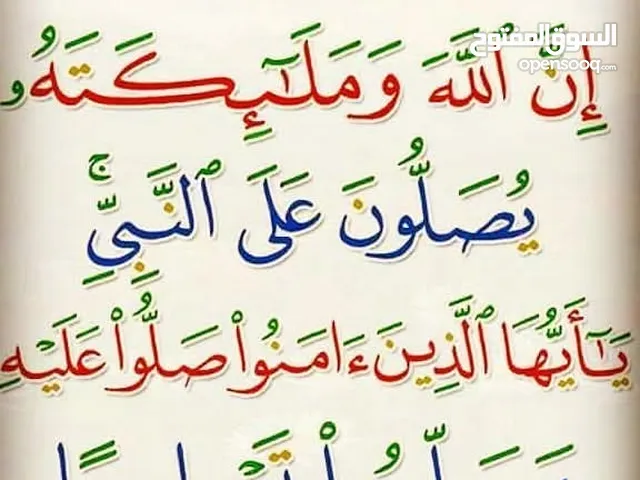 السوق المفتوح
opensooq.com
إِنَّ ٱللَّهَ وَمَلَٰٓئِكَتَهُۥ
يُصَلُّونَ عَلَى ٱلنَّبِيِّۚ
يَٰٓأَيُّهَا ٱلَّذِينَ ءَامَنُوا۟ صَلُّوا۟ عَلَيْهِ